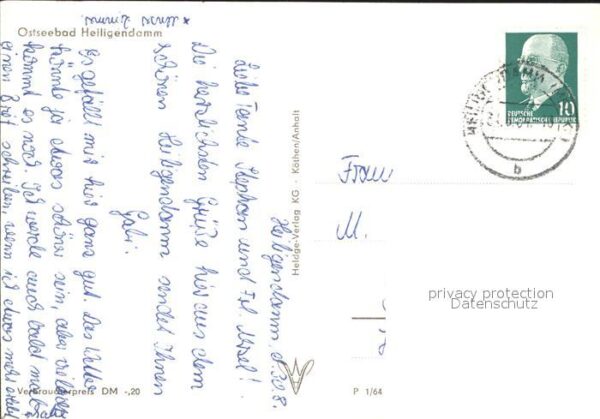 Ostseebad Heiligendamm
Heiligendamm, d. 30.8.
Liebe Tante Stephan und Frl. Misel!
Die herzlichsten Grüße hier aus dem
schönen Heiligendamm sendet Ihnen
Gabi.
Es gefällt mir hier ganz gut. Das Wetter
könnte ja etwas schöner sein, aber vielleicht
kommt es noch. Ich werde auch bald mal
einen Brief schreiben, wenn ich etwas mehr
Verbraucherpreis DM -,20
Heldge-Verlag KG · Köthen/Anhalt
P 1/64
Frau
M.
DEUTSCHE
DEMOKRATISCHE REPUBLIK
10
b
privacy protection
Datenschutz